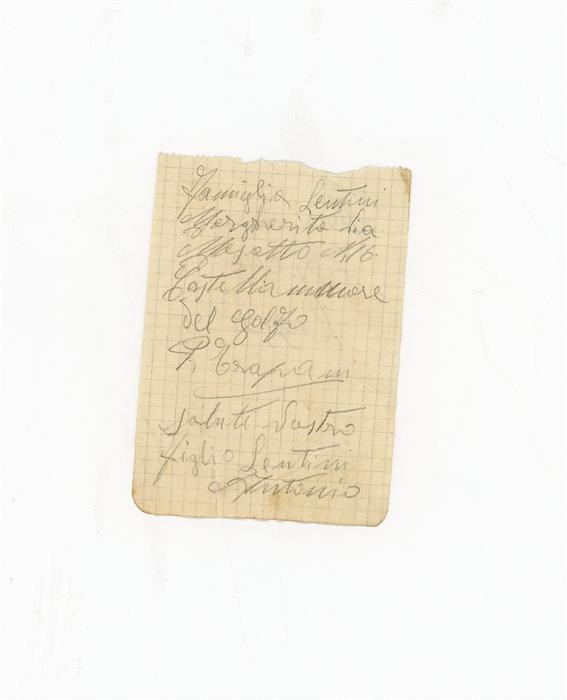 Famiglia Lentini
Margherita Via
Masatto N 16.
Castellammare
del Golfo
P, Trapani
salute Vostro
figlio Lentini
Antonio